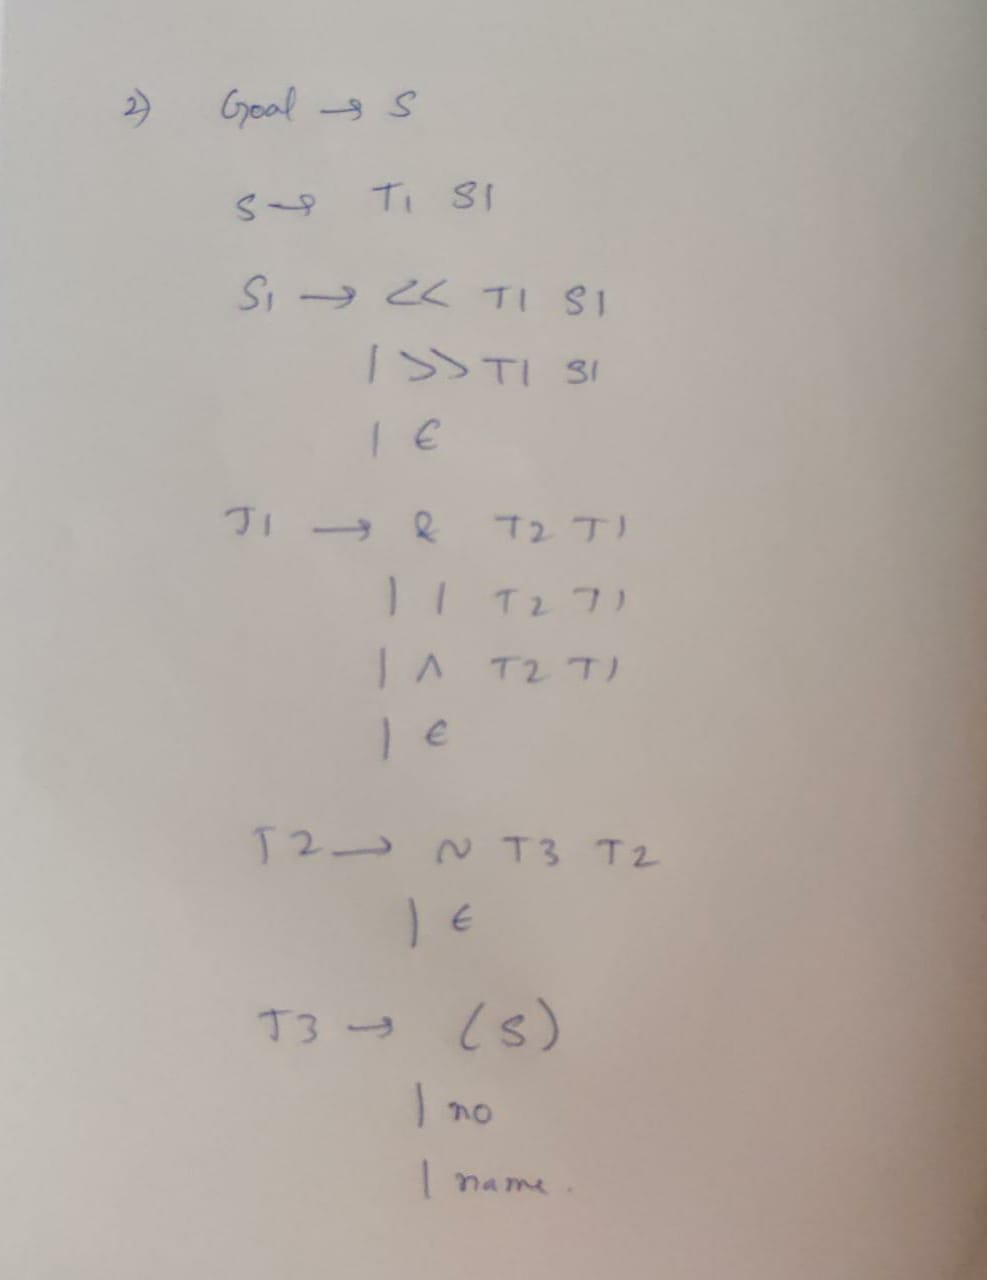 2) Goal → S
S → T1 S1
S1 → << T1 S1
| >> T1 S1
| ε
T1 → & T2 T1
| | T2 T1
| ∧ T2 T1
| ε
T2 → ~ T3 T2
| ε
T3 → (S)
| no
| name.